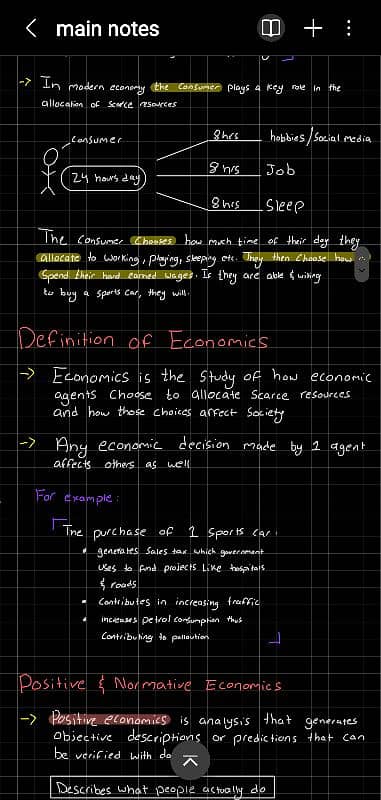 main notes
-> In modern economy the consumer plays a key role in the
allocation of scarce resources
consumer
24 hours day
8hrs hobbies/Social media
8 hrs Job
8hrs Sleep
The Consumer Chooses how much time of their day they
allocate to working, playing, sleeping etc. They then choose how
Spend their hard earned wages. If they are able & willing
to buy a sports car, they will.
Definition of Economics
-> Economics is the study of how economic
agents choose to allocate Scarce resources
and how those choices affect Society
-> Any economic decision made by 1 agent
affects others as well
For example:
The purchase of 1 sports car:
• generates sales tax which government
uses to fund projects like hospitals
& roads
• Contributes in increasing traffic
• increases petrol consumption thus
Contributing to pollution
Positive & Normative Economics
-> Positive economics is analysis that generates
objective descriptions or predictions that can
be verified with
Describes what people actually do